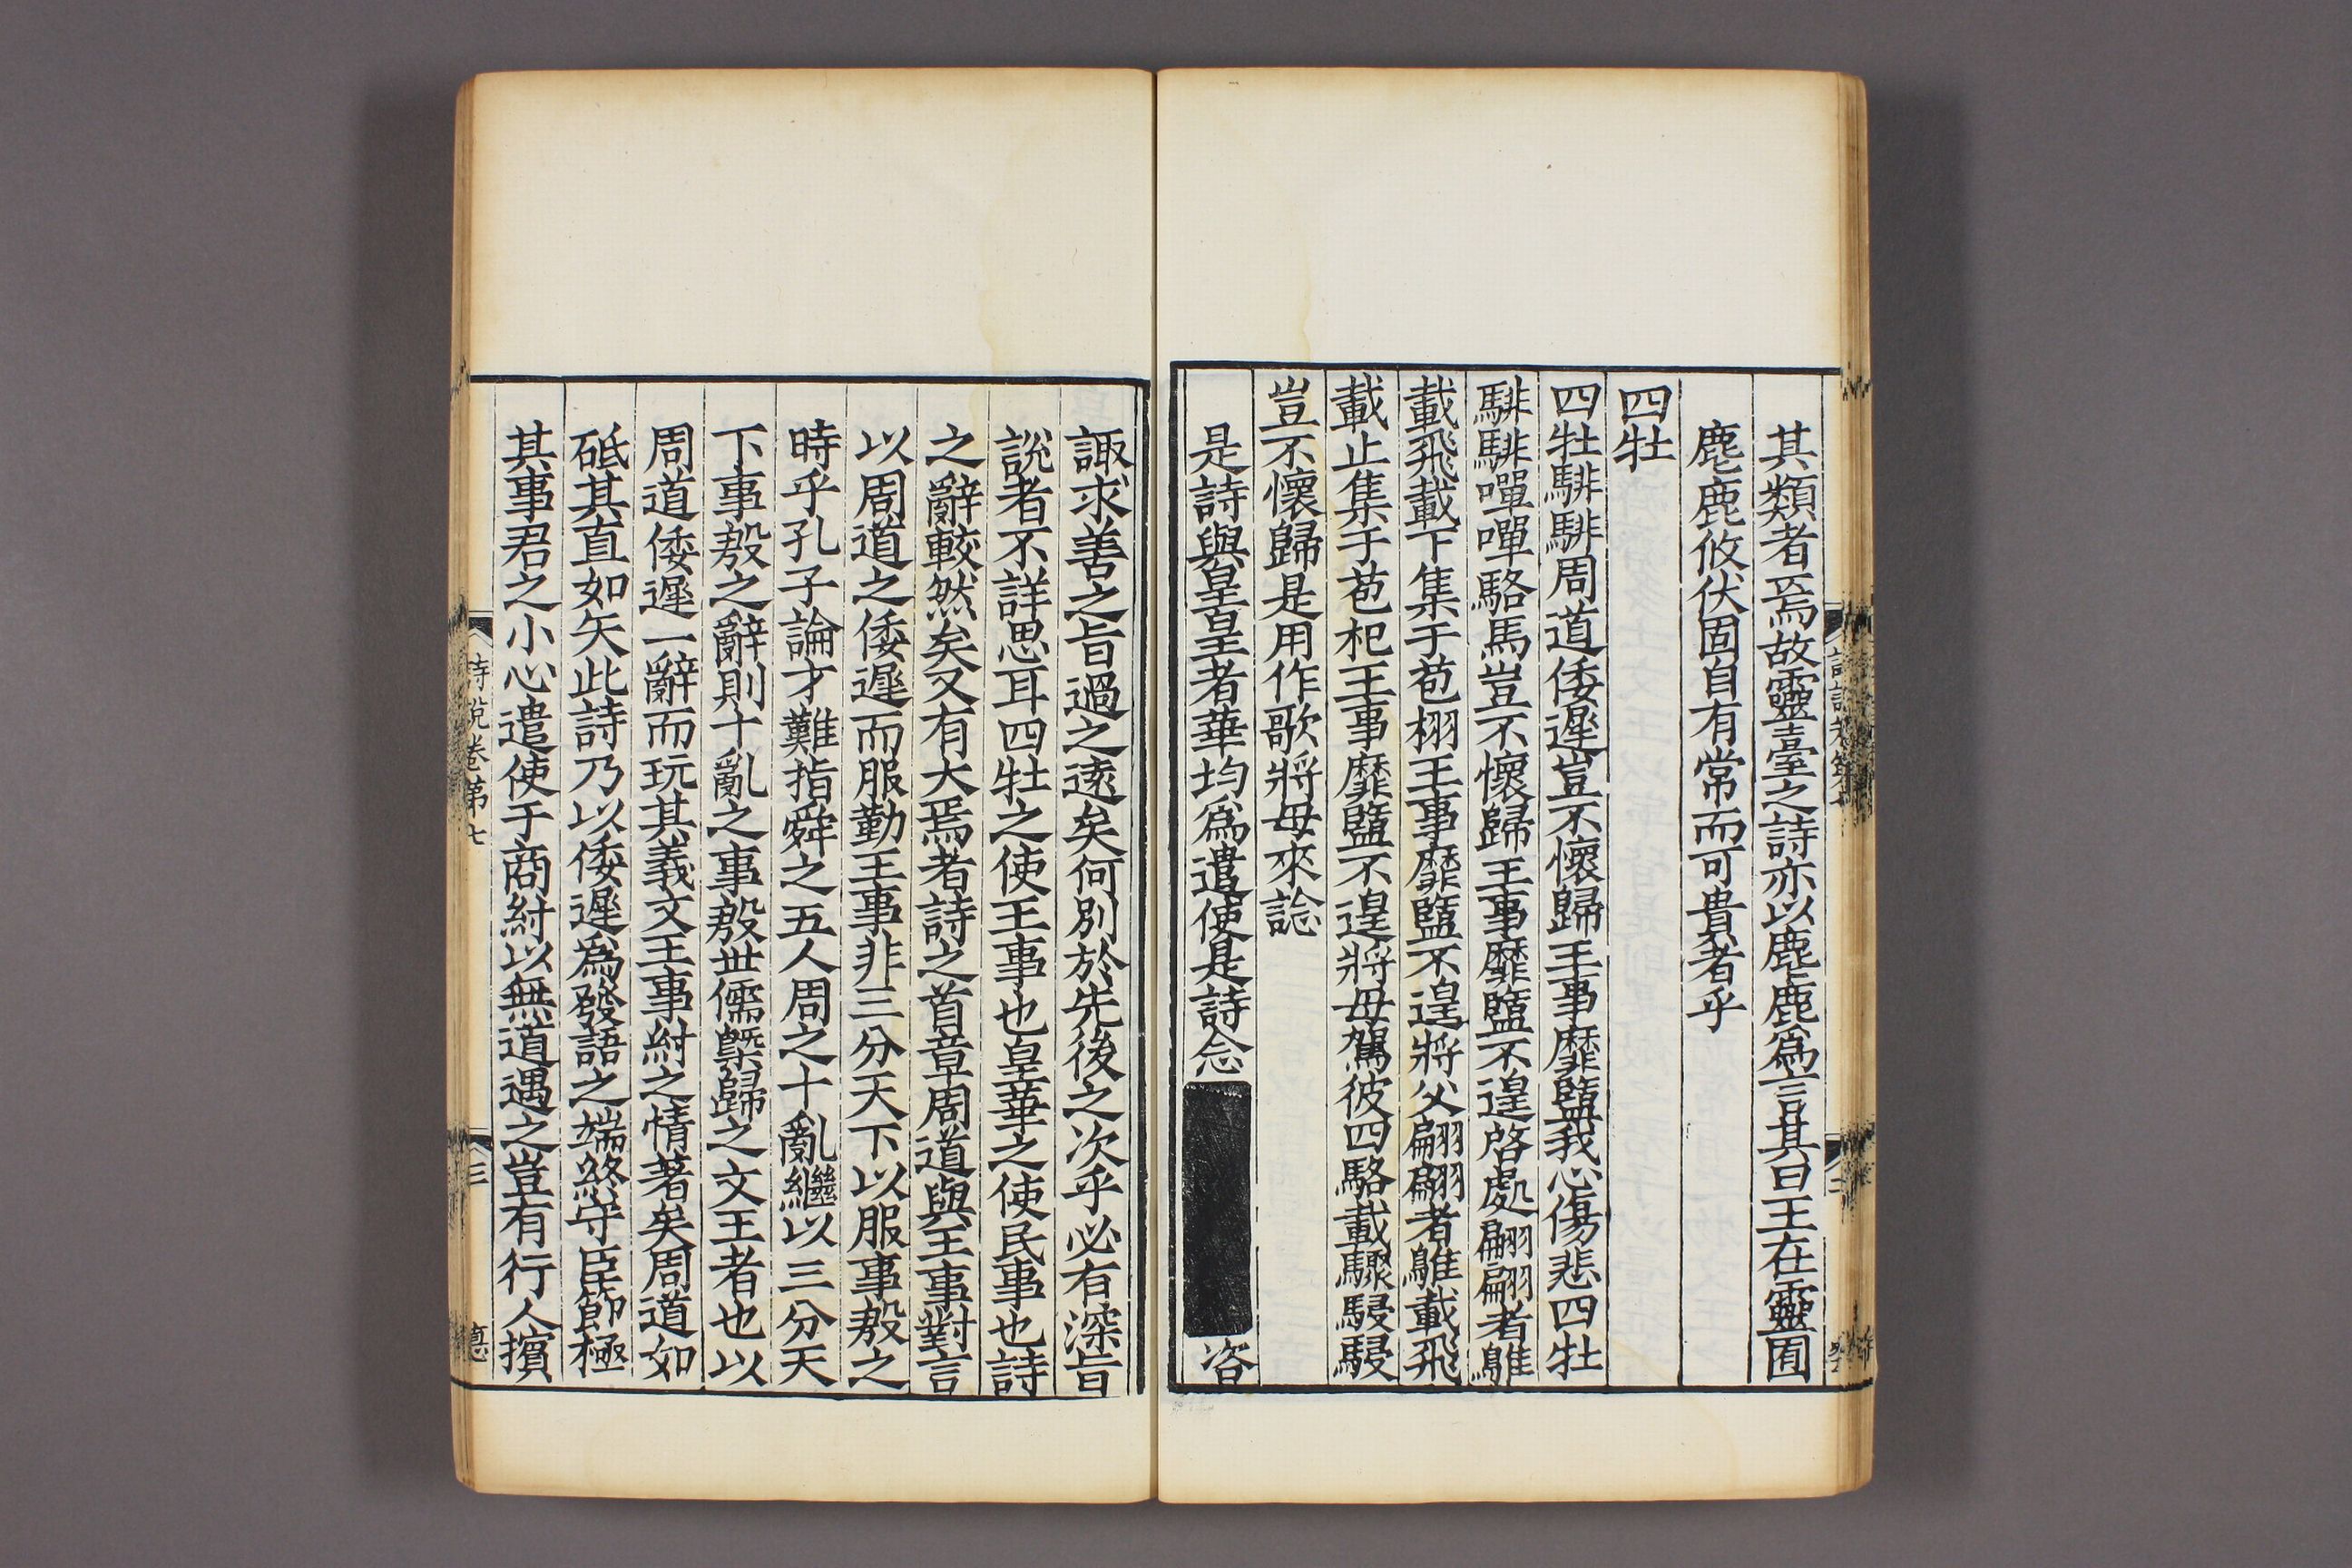 其類者焉故靈臺之詩亦以麀鹿爲言其曰王在靈囿
麀鹿攸伏固自有常而可貴者乎
四牡
四牡騑騑周道倭遲豈不懷歸王事靡盬我心傷悲四牡
騑騑嘽嘽駱馬豈不懷歸王事靡盬不遑啓處翩翩者鵻
載飛載下集于苞栩王事靡盬不遑將父翩翩者鵻載飛
載止集于苞杞王事靡盬不遑將母駕彼四駱載驟駸駸
豈不懷歸是用作歌將母來諗
是詩與皇皇者華均爲遣使是詩念咨
諏求善之旨過之遠矣何別於先後之次乎必有深旨
說者不詳思耳四牡之使王事也皇華之使民事也詩
之辭較然矣又有大焉者詩之首章周道與王事對言
以周道之倭遲而服勤王事非三分天下以服事殷之
時乎孔子論才難指舜之五人周之十亂繼以三分天
下事殷之辭則十亂之事殷世儒槩歸之文王者也以
周道倭遲一辭而玩其義文王事紂之情著矣周道如
砥其直如矢此詩乃以倭遲爲發語之端終守臣節極
其事君之小心遣使于商紂以無道遇之豈有行人擯
詩說卷第七
三